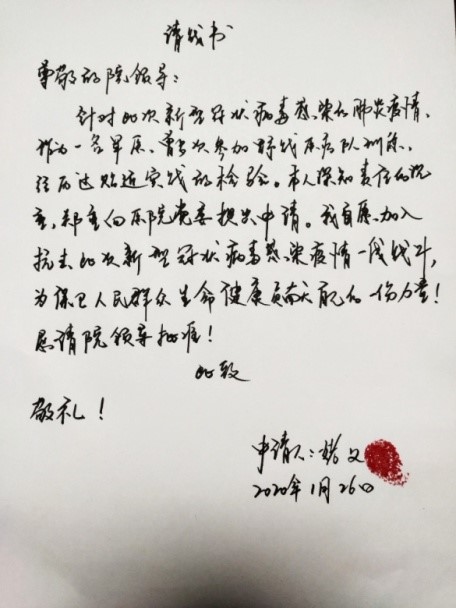 请战书
尊敬的院领导：
针对此次新型冠状病毒感染的肺炎疫情，
作为一名军医，曾多次参加野战医疗队训练，
经历过贴近实战的检验。本人深知责任的沉
重，郑重向医院党委提出申请。我自愿加入
抗击此次新型冠状病毒感染疫情一线战斗，
为保卫人民群众生命健康贡献我的一份力量！
恳请院领导批准！
此致
敬礼！
申请人：文
2020年1月26日